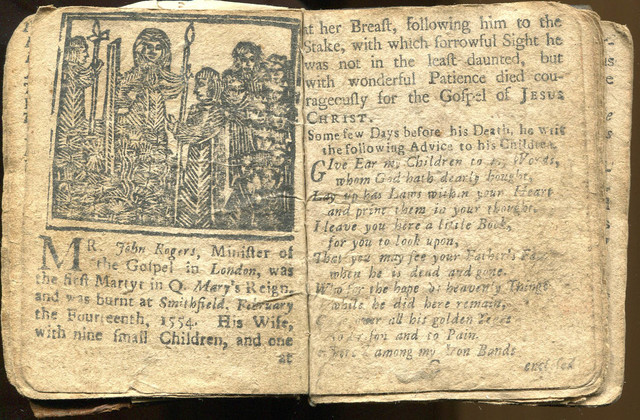 MR. John Rogers, Minister of
the Gospel in London, was
the first Martyt in Q. Mary's Reign,
and was burnt at Smithfield, February
the Fourteenth, 1554. His Wife,
with nine small Children, and one
at
at her Breast, following him to the
Stake, with which sorrowful Sight he
was not in the least daunted, but
with wonderful Patience died cou-
rageously for the Gospel of JESUS
CHRIST.
Some few Days before his Death, he writ
the following Advice to his Children.
GIve Ear my Children to my Words,
whom God hath dearly bought,
Lay up his Laws within your Heart
and print them in your thought,
I leave you here a little Book,
for you to look upon,
That you may see your Father's Face
when he is dead and gone.
Who for the hope of heavenly Things
while he did here remain,
over all his golden Years
son and to Pain.
among my Iron Bands